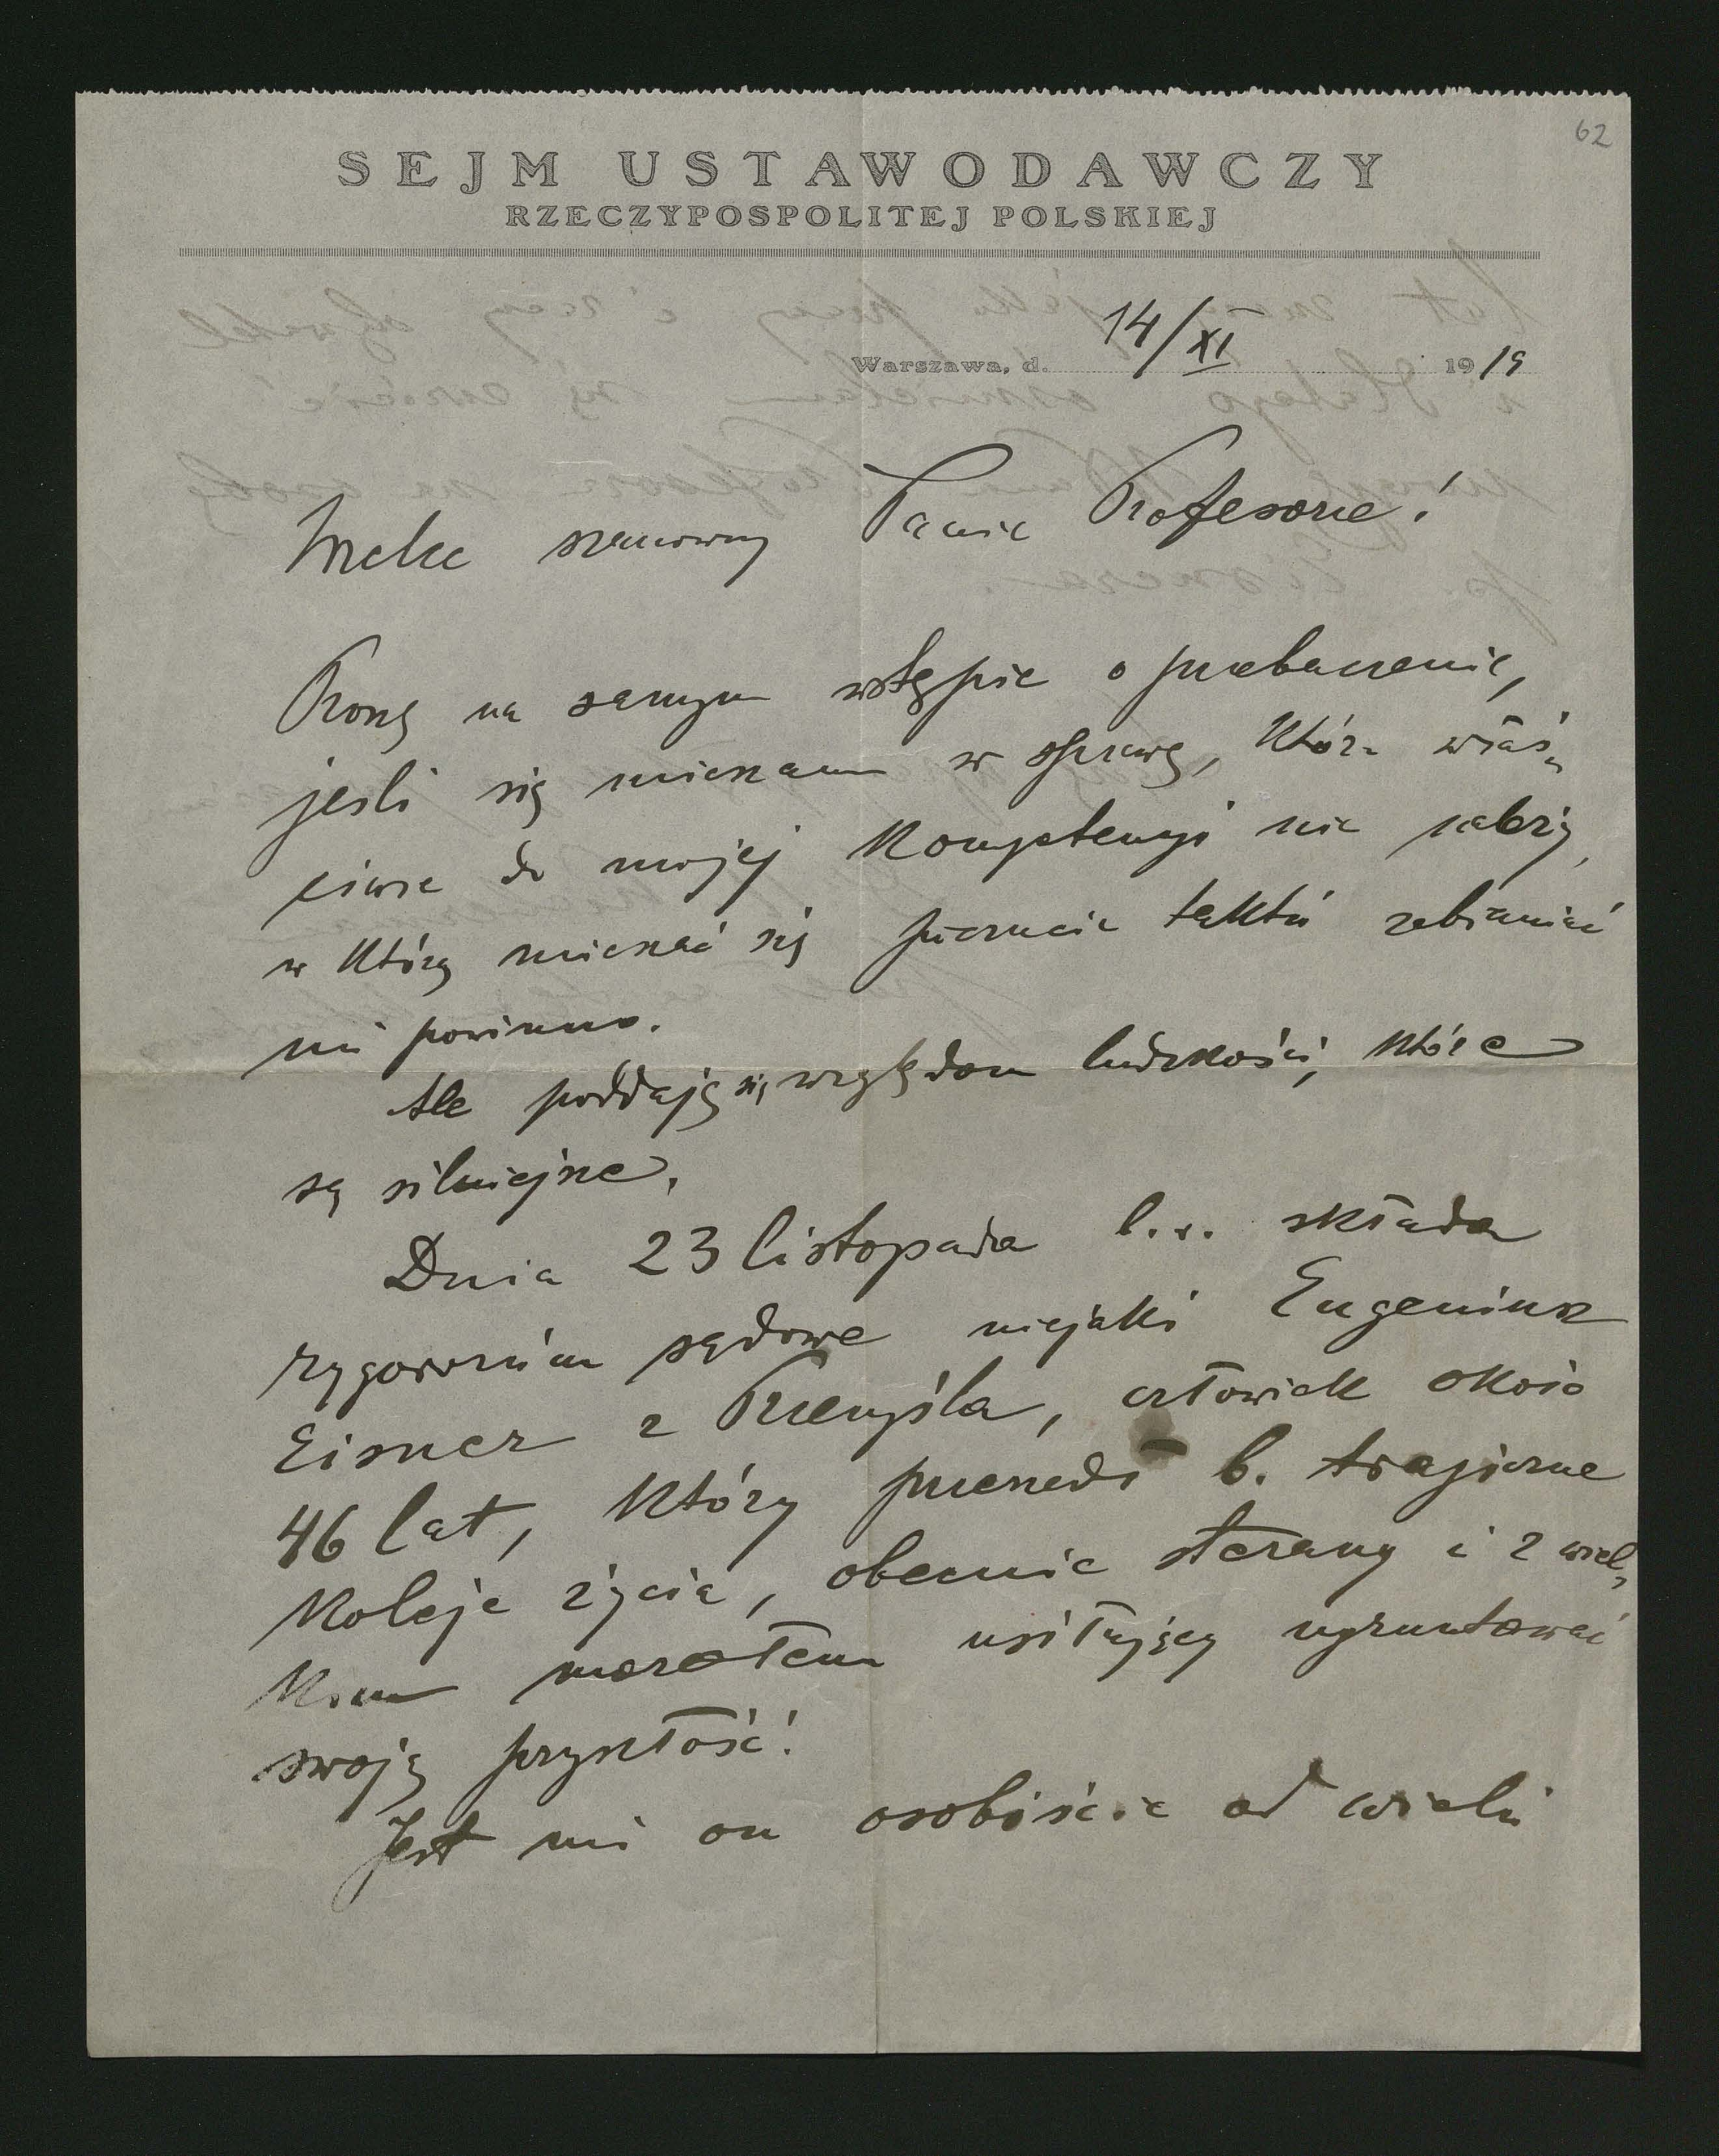 62
SEJM USTAWODAWCZY
RZECZYPOSPOLITEJ POLSKIEJ
Warszawa, d. 14/XI 1919
Wielce szanowny Panie Profesorze!
Proszę na samym wstępie o przebaczenie,
jeśli się mieszam w sprawę, która właś-
ciwie do mojej kompetencyi nie należy,
w którą mieszać się poczucie taktu zabraniać
mi powinno.
Ale poddaję się względom ludzkości, które
są silniejsze.
Dnia 23 listopada b.r. składa
rygorozum sądowe niejaki Eugeniusz
Eisner z Przemyśla, człowiek około
46 lat, który przeszedł b. tragiczne
koleje życia, obecnie sterany i z wiel-
kim mozołem usiłujący ugruntować
swoją przyszłość!
Jest mi on osobiście od wielu